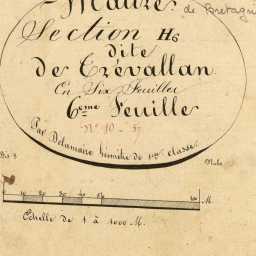 Maure de Bretagne
Section H6
dite
de Trévallan
En Six Feuilles
6eme Feuille
N° 10
Par Delamaire Géomètre de 1ère classe
Echelle de 1 à 1000 M.